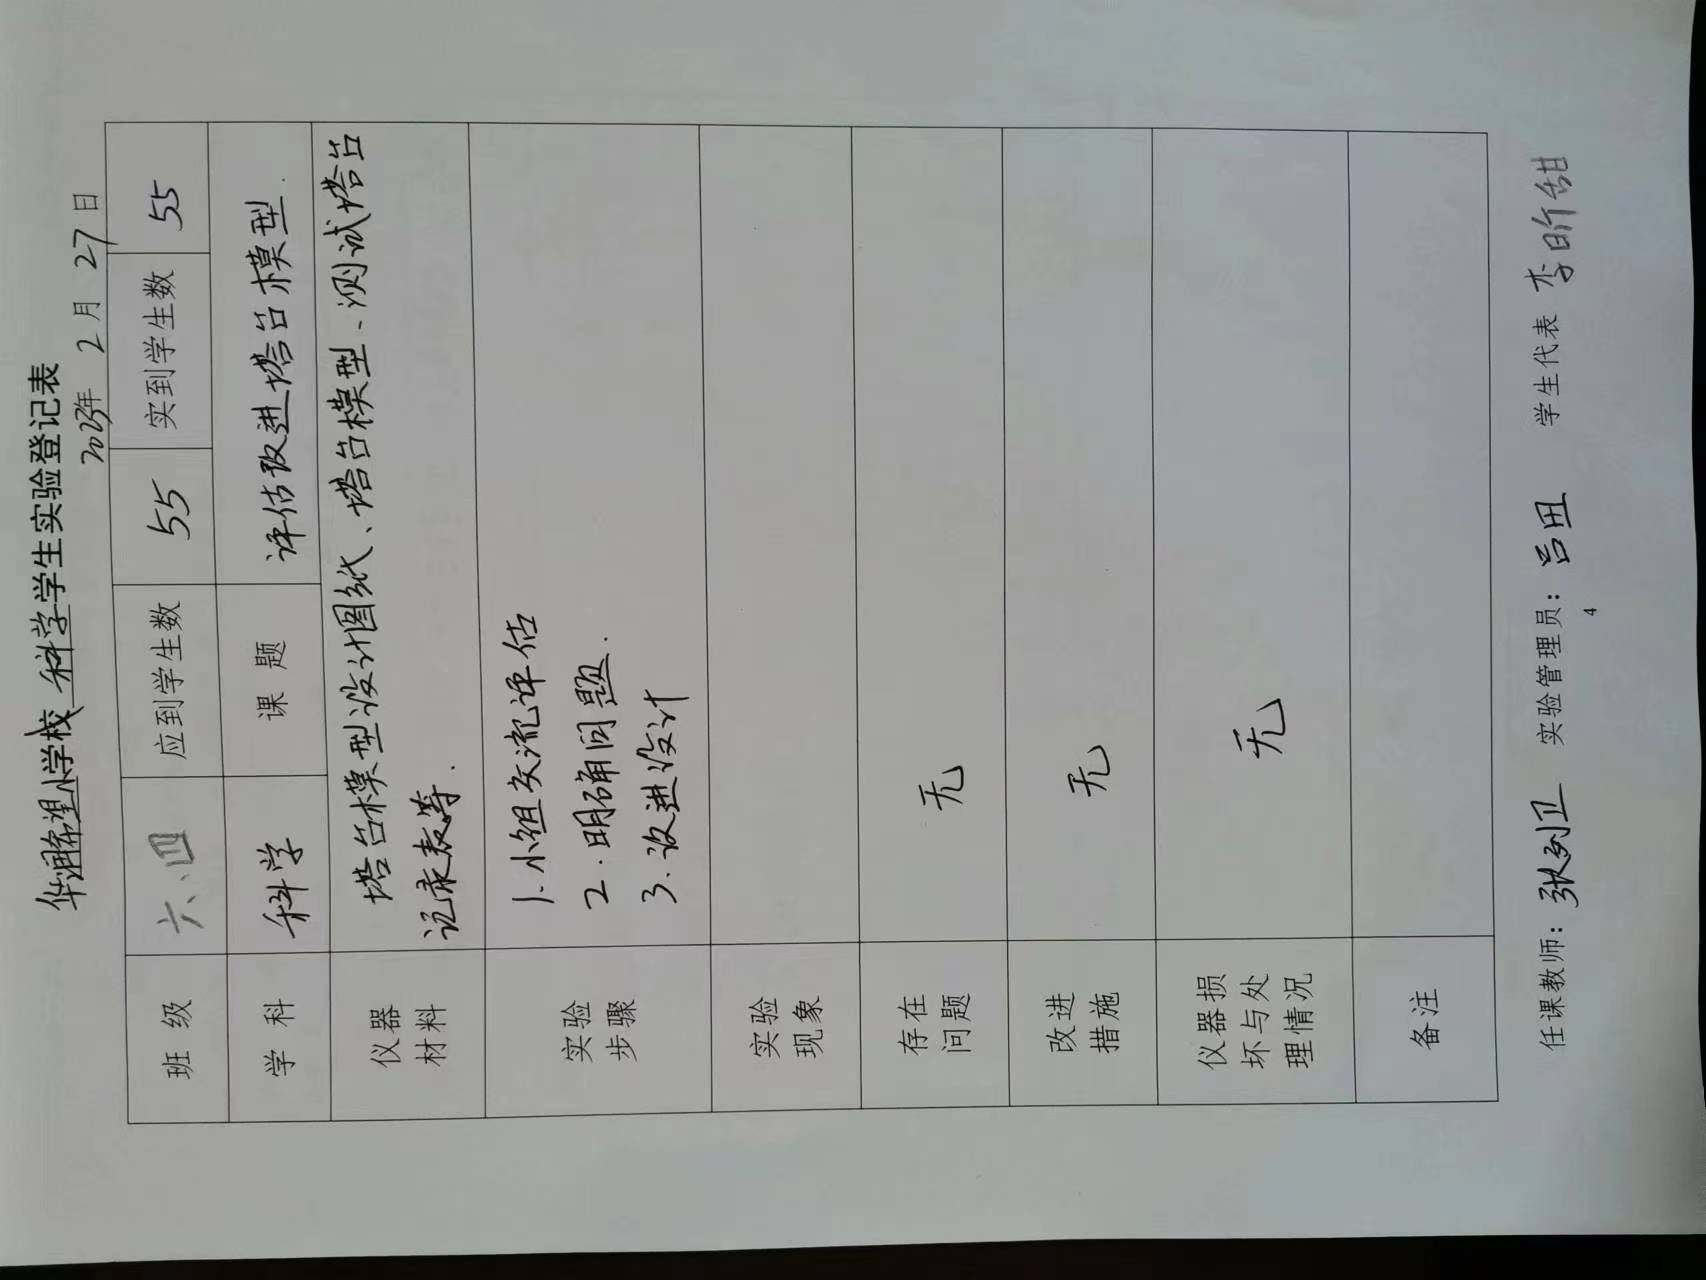 华润希望小学校 科学 学生实验登记表
2023年 2 月 27 日
班 级 六、四 应到学生数 55 实到学生数 55
学 科 科学 课 题 评估改进塔台模型.
仪器 塔台模型设计图纸、塔台模型、测试塔台
材料 记录表等.
实验 1.小组交流评估
步骤 2.明确问题.
3.改进设计
实验
现象
存在
问题 无
改进
措施 无
仪器损
坏与处
理情况 无
备注
任课教师：张列卫 实验管理员：吕田 学生代表 李昕甜
4